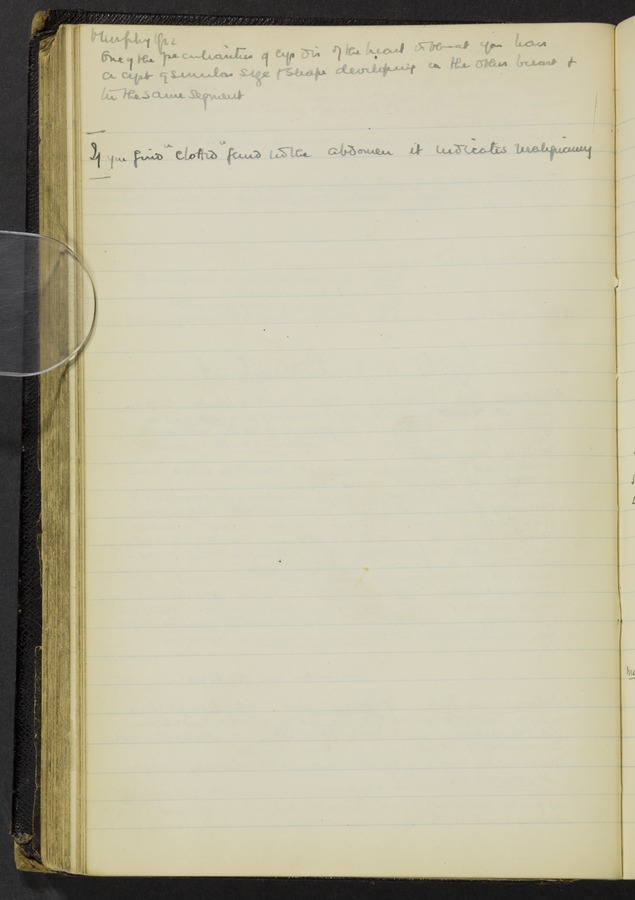 Murphy 1912
One of the peculiarities of cys dis of the breast is that you have
a cyst of similar size & shape developing in the other breast &
in the same segment
If you find "clotted" fluid in the abdomen it indicates malignancy